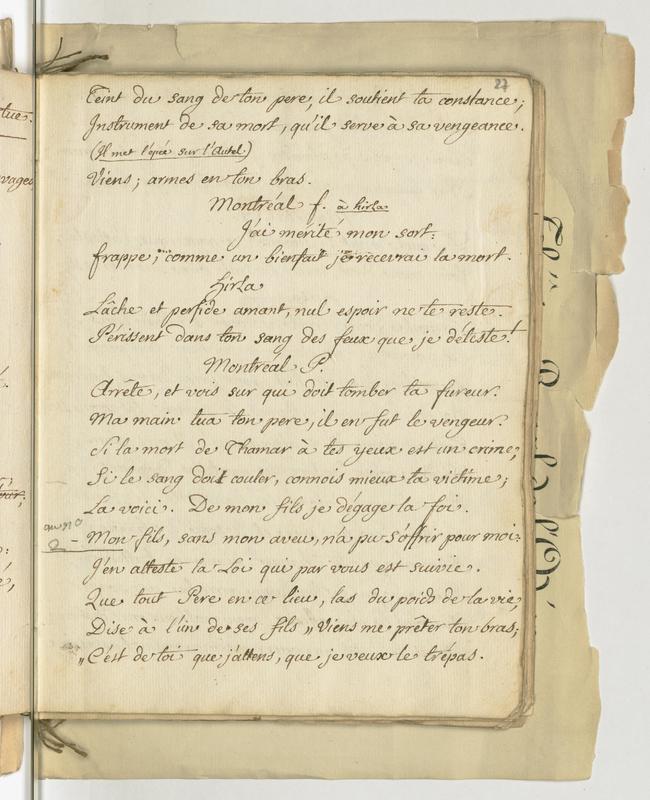 27
Teint du sang de ton pere, il soutient ta constance;
Instrument de sa mort, qu'il serve à sa vengeance.
(Il met l'épée sur l'Autel.)
Viens; armes en ton bras.
Montréal f. à hirza
J'ai mérité mon sort:
frappe; comme un bienfait je recevrai la mort.
hirza
Lâche et perfide amant, nul espoir ne te reste.
Périssent dans ton sang des feux que je déteste!
Montréal P.
Arrête, et vois sur qui doit tomber ta fureur.
Ma main tua ton pere, il en fut le vengeur.
Si la mort de Thamar à tes yeux est un crime,
Si le sang doit couler, connois mieux ta victime;
La voici. De mon fils je dégage la foi.
Mon fils, sans mon aveu, n'a pu s'offrir pour moi:
J'en atteste la Loi qui par vous est suivie.
Que tout Pere en ce lieu, las du poids de la vie,
Dise à l'un de ses fils „Viens me prêter ton bras;
„C'est de toi que j'attens, que je veux le trépas.